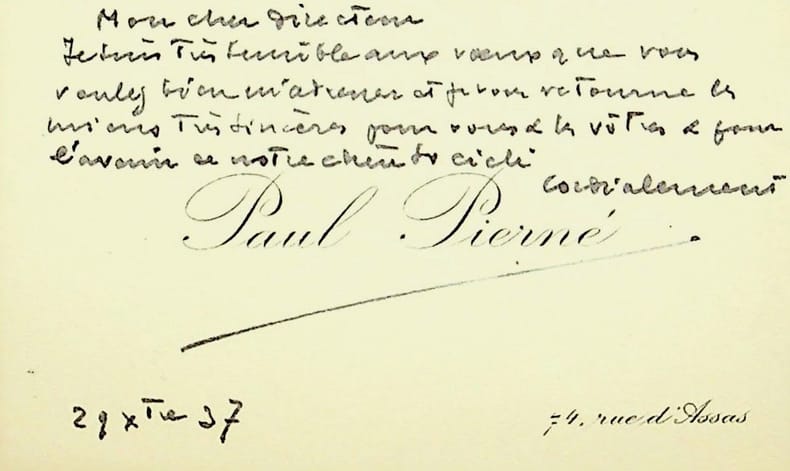 Mon cher Directeur
Je suis très sensible aux vœux que vous
voulez bien m'adresser et je vous retourne les
miens très sincères pour vous & les vôtres & pour
l'avenir de notre chère
cordialement
Paul Pierné
29 Xbre 37
74, rue d'Assas